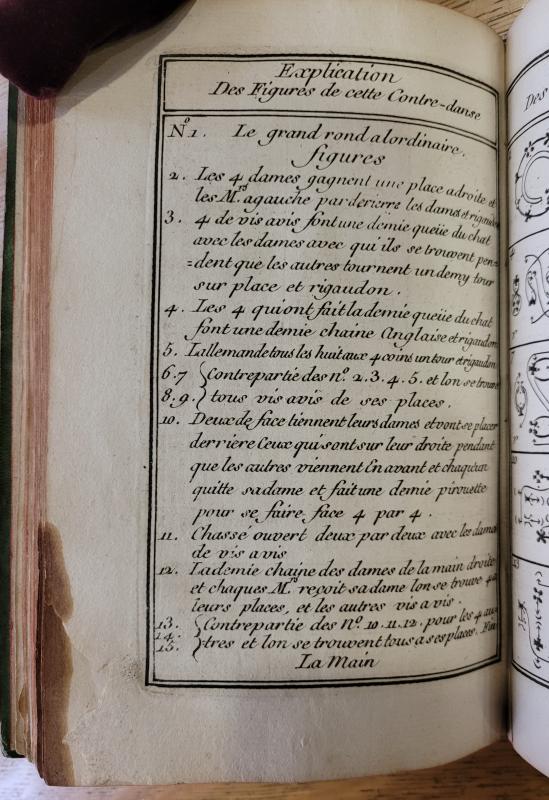 Explication
Des Figures de cette Contre-danse
No. 1. Le grand rond alordinaire.
figures
2. Les 4 dames gagnent une place adroite et
les Mrs agauche parderierre les dames et rigaudon
3. 4 de vis avis font une demie queüe du chat
avec les dames avec qui ils se trouvent pen=
=dent que les autres tournent un demy tour
sur place et rigaudon.
4. Les 4 qui ont fait la demie queüe du chat
font une demie chaine Anglaise et rigaudon
5. Lallemande tous les huit aux 4 coins un tour et rigaudon
6.7 Contrepartie des no. 2. 3. 4. 5. et lon se trouve
8.9. tous vis avis de ses places.
10. Deux de face tiennent leurs dames et vont se placer
derrière Ceux qui sont sur leur droite pendant
que les autres viennent En avant et chaqu'un
quitte sa dame et fait une demie pirouette
pour se faire face 4 par 4.
11. Chassé ouvert deux par deux avec les dames
de vis avis
12. La demie chaine des dames de la main droite
et chaques Mrs reçoit sa dame lon se trouve 4 a
leurs places, et les autres vis a vis.
13. Contrepartie des No. 10. 11. 12. pour les 4 au=
14. tres et lon se trouvent tous a ses places. Fin
15.
La Main
Des